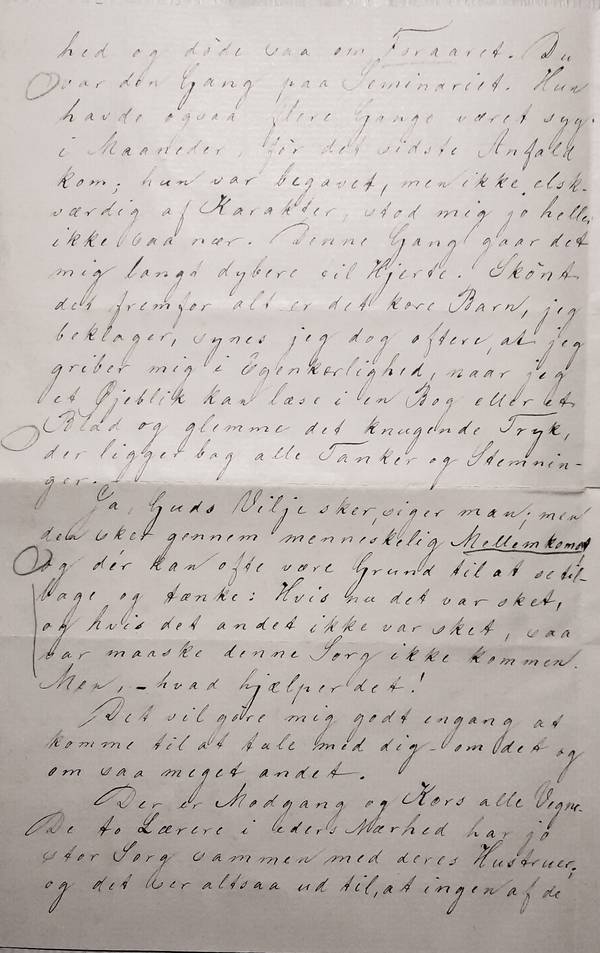 hed og døde saa om Foraaret. Du
var den Gang paa Seminariet. Hun
havde ogsaa flere Gange været syg
i Maaneder, før det sidste Anfald
kom; hun var begavet, men ikke elsk-
værdig af Karakter, stod mig jo heller
ikke saa nær. Denne Gang gaar det
mig langt dybere til Hjerte. Skönt
det fremfor alt er det kære Barn, jeg
beklager, synes jeg dog oftere, at jeg
griber mig i Egenkærlighed, naar jeg
et Øjeblik kan læse i en Bog eller et
Blad og glemme det knugende Tryk,
der ligger bag alle Tanker og Stemnin-
ger.
Ja, Guds Vilje sker, siger man; men
den sker gennem menneskelig Mellemkomst
og dér kan ofte være Grund til at se til-
bage og tænke: Hvis nu det var sket,
og hvis det andet ikke var sket, saa
var maaske denne Sorg ikke kommen.
Men, – hvad hjælper det!
Det vil göre mig godt engang at
komme til at tale med dig – om det og
om saa meget andet.
Der er Modgang og Kors alle Vegne.
De to Lærere i eders Nærhed har jo
stor Sorg sammen med deres Hustruer;
og det ser altsaa ud til, at ingen af de